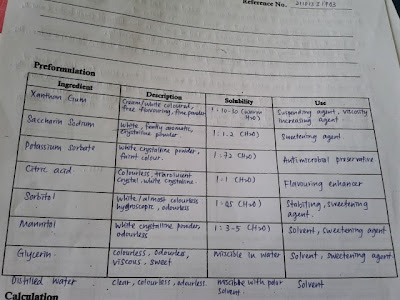 Reference No.
Preformulation
Ingredient Description Solubility Use
Xanthan Gum Cream/white coloured, free flavouring, fine powder 1:10-50 (warm H2O) Suspending agent, viscosity increasing agent.
Saccharin Sodium White, aromatic, crystalline powder 1:1.2 (H2O) Sweetening agent
Potassium Sorbate White crystalline powder, faint odour. 1:72 (H2O) Antimicrobial preservative
Citric acid Colourless, translucent crystal, white crystalline 1:1 (H2O) Flavouring enhancer
Sorbitol White/almost colourless hygroscopic, odourless (H2O) sweetening agent.
Mannitol White crystalline powder, odourless (H2O) Solvent, sweetening agent
Glycerin Colourless, odourless, viscous, sweet Miscible in water Solvent, sweetening agent
Distilled water Clear, colourless, odourless. miscible with polar solvent. Solvent
Calculation